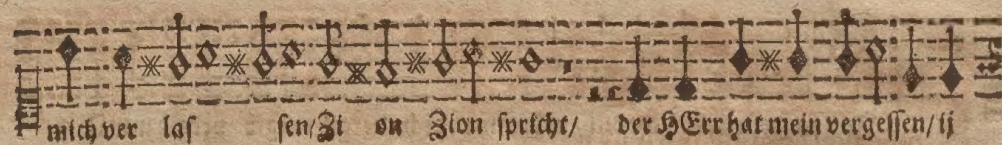 mich ver las sen/Zi on Zion spricht/ der HErr hat mein vergessen/ ij